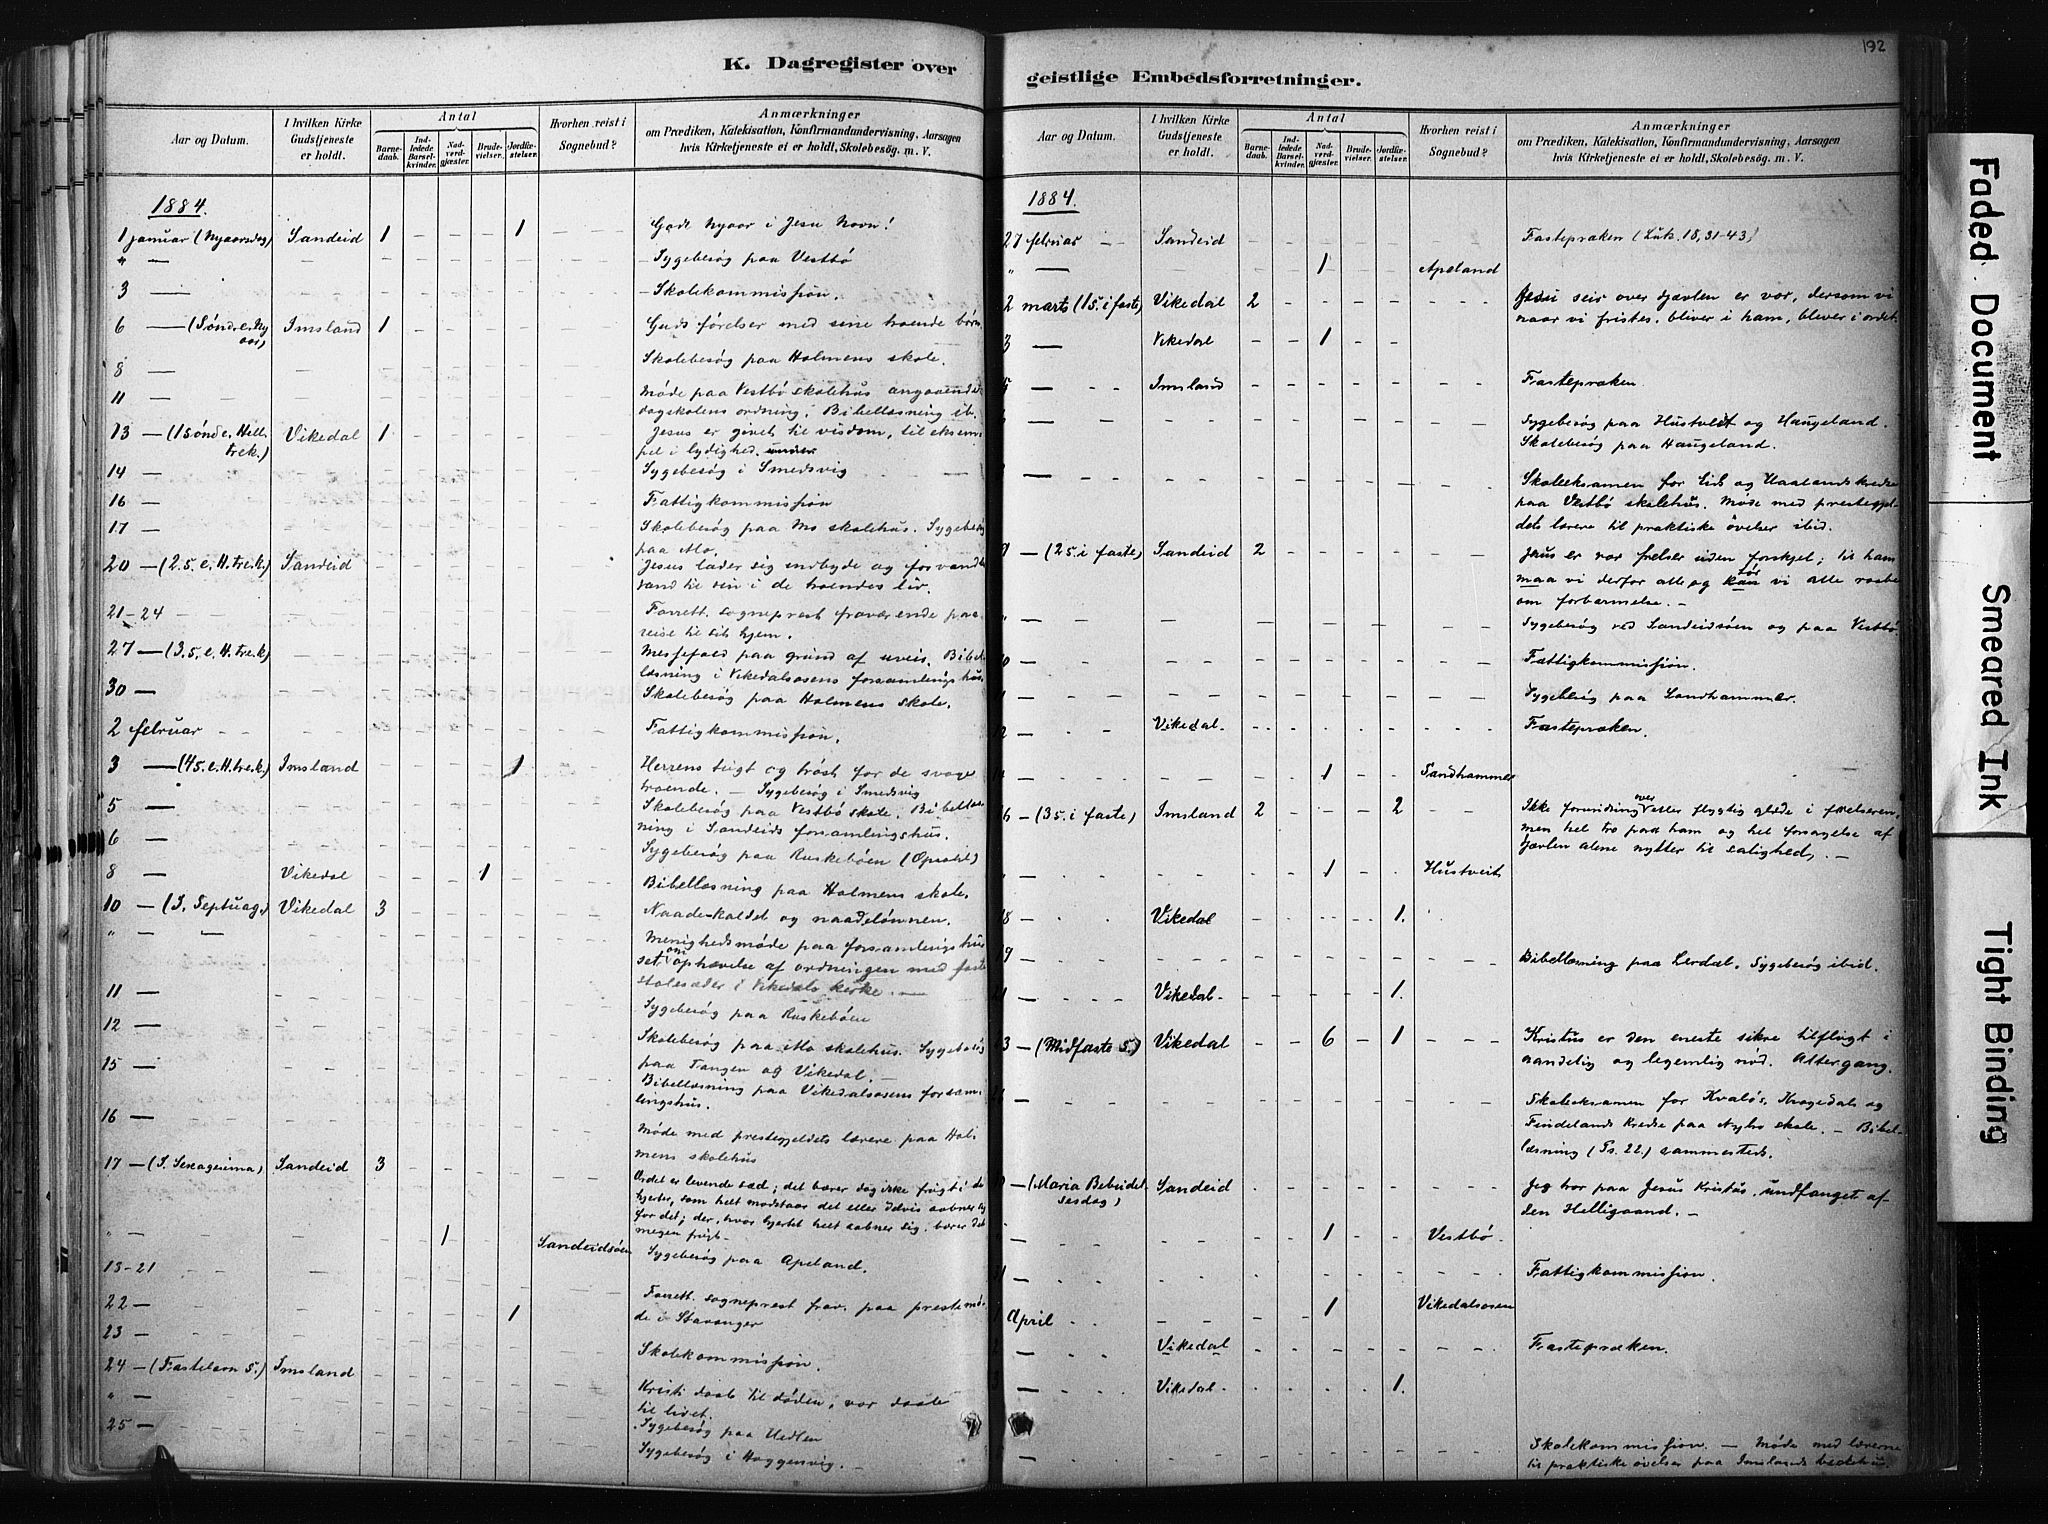 K. Dagregister over
Aar og Datum.
I hvilken Kirke Gudstjeneste er holdt.
Antal
Barnedaab.
Indledede Barselkvinder.
Nadverdgjæster.
Brudevielser.
Jordfæstelser.
Hvorhen reist i Sognebud?
Anmærkninger
om Prædiken, Katekisation, Konfirmandundervisning, Aarsagen
hvis Kirketjeneste ei er holdt, Skolebesøg. m. V.
1884.
1 januar (Nyaarsdag) Sandeid 1 - - - 1 Godt Nyaar i Jesu Navn!
" — Sygebesøg paa Vestbö
3 — Skolekommission.
6 — (Sönd. e. Nyaar) Imsland 1 Guds förelser med sine troende börn.
8 — Skolebesøg paa Holmens skole.
11 — Möde paa Vestbö skolehus angaaende
dagskolens ordning. Bibellæsning ib.
13 — (1 sönd e. Hell. trek.) Vikedal 1 Jesus er givet til visdom, til eksempel i lydighed.
14 — Sygebesøg i Smedsvig
16 — Fattigkommission
17 — Skolebesøg paa Mo skolehus. Sygebesøg
paa Mo.
20 — (2. s. e. H. tre. k) Sandeid Jesus lader sig indbyde og forvandle
vand til vin i de troendes liv.
21-24 Forrett. sogneprest fraværende paa
reise til sit hjem.
27 — (3. s. e. H. tre. k) Messefald paa grund af uveir. Bibellæsning i Vikedalsosens forsamlingshus.
30 — Skolebesøg paa Holmens skole.
2 februar Fattigkommission.
3 — (4 s. e. H. tre. k.) Imsland 1 Herrens tugt og tröst for de svage
troende. — Sygebesøg i Smedsvig
5 — Skolebesøg paa Vestbö skole. Bibellæsning i Sandeids forsamlingshus.
6 — Sygebesøg paa Ruskebøen (Opsal)
8 — Vikedal 1 Bibellæsning paa Holmens skole.
10 — (S. Septuag.) Vikedal 3 Naade-kaldet og naadelönnen.
" — Menighedsmøde paa forsamlingshuset om ophævelse af ordningen med faste
stolesæder i Vikedals kirke. —
11 — Sygebesøg paa Ruskebøen
12 — Skolebesøg paa Mo skolehus. Sygebesøg
paa Tangen og Vikedal. —
15 — Bibellæsning paa Vikedalsosens forsamlingshus.
16 — Möde med prestegjeldets lærere paa Holmens skolehus
17 — (S. Sexagesima) Sandeid 3 Ordet er levende sæd; det bærer dog ikke frugt i de
hjerter, som helt modstaar det eller delvis aabner sig
for det; der, hvor hjertet helt aabner sig, bærer det
megen frugt.
" 1 Sandeidsöen Sygebesøg paa Apeland.
18-21 Forrett. sogneprest frav. paa prestemöde i Stavanger
22 — 1
23 — Skolekommission.
24 — (Fastelavn S.) Imsland Kristi daab til döden, vor daab
til livet.
" — Sygebesøg paa Uedlen
25 — Sygebesøg i Hoggensvig. —
192
geistlige Embedsforretninger.
Aar og Datum.
I hvilken Kirke Gudstjeneste er holdt.
Antal
Barnedaab.
Indledede Barselkvinder.
Nadverdgjæster.
Brudevielser.
Jordfæstelser.
Hvorhen reist i Sognebud?
Anmærkninger
om Prædiken, Katekisation, Konfirmandundervisning, Aarsagen
hvis Kirketjeneste ei er holdt, Skolebesøg. m. V.
1884.
27 februar Sandeid Fastepræken (Luk. 18, 31-43)
" — 1 Apeland
2 marts (1 S. i faste) Vikedal 2 Jesu seir over djævlen er vor, dersom vi
naar vi fristes, bliver i ham, bliver i ordet.
3 — Vikedal 1
5 — Imsland Fastepræken
Sygebesøg paa Hustveit og Haugeland.
Skolebesøg paa Haugeland.
Skoleeksamen for Eid og Haalands kredse
paa Vestbö skolehus. Möde med prestegjeldets lærere til praktiske övelser ibid.
9 — (2 S. i faste) Sandeid 2 Jesus er vor frelser uden forskjel; til ham
maa vi derfor alle og tör vi alle raabe
om forbarmelse. —
" Sygebesøg ved Sandeidsöen og paa Vestbö
10 Fattigkommission.
11 Sygebesøg paa Sandhammer.
12 Vikedal Fastepræken.
14 1 Sandhammer
16 — (3 S. i faste) Imsland 2 2 Ikke forundring over eller flygtig glæde i frelseren,
men hel tro paa ham og hel forsagelse af
djævlen alene nytter til salighed. —
" 1 Hustveit
18 Vikedal 1.
19 Bibellæsning paa Lerdal. Sygebesøg ibid.
21 Vikedal 1.
23 — (Midfaste S.) Vikedal 6 1 Kristus er den eneste sikre tilflugt i
aandelig og legemlig nød. Altergang.
Skoleeksamen for Kvaløs, Krogedals og
Findelands Kredse paa Nybro skole. — Bibellæsning (Ps. 22.) sammesteds.
— (Maria Bebudelsesdag) Sandeid Jeg tror paa Jesus Kristus, undfanget af
den Helligaand. —
1 Vestbö
31 Fattigkommission.
1 April 1 Vikedalsosen
2 Vikedal Fastepræken.
3 — Vikedal 1.
— Skolekommission. — Möde med lærerne
til praktiske övelser paa Imslands bedehus.
Faded Document
Smeared Ink
Tight Binding